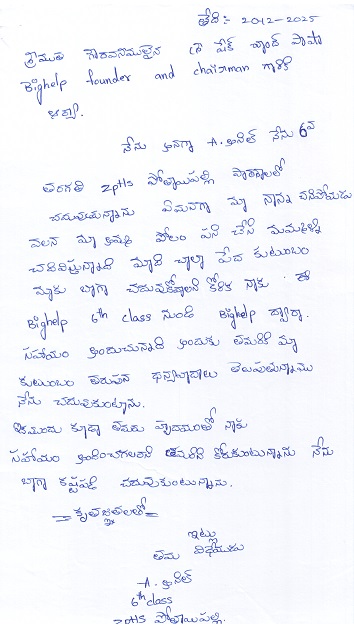 తేది:- 20-12-2025
శ్రీయుత గౌరవనీయులైన శ్రీ షేక్ చాంద్ పాషా
Bighelp founder and chairman గారికి
నేను అనగా A. అనిల్ నేను 6వ
తరగతి ZPHS పోత్నాపల్లి పాఠశాలలో
చదువుతున్నాను ఏమనగా మా నాన్న చనిపోయాడు
వలన మా అమ్మ పొలం పని చేసి మమ్మల్ని
చదివిస్తున్నాది మాది చాలా పేద కుటుంబం
మాకు బాగా చదువుకోవాలని కోరిక నాకు ఈ
Bighelp 6th class నుండి Bighelp ద్వారా
సహాయం అందుచున్నది అందుకు తమరికి మా
కుటుంబం తరుపున ధన్యవాదాలు తెలుపుతున్నాము
నేను చదువుకుంటాను.
ముందు కూడా తమరు హృదయంతో నాకు
సహాయం అందించగలరని తమరిని కోరుకుంటున్నాను నేను
బాగా కష్టపడి చదువుకుంటున్నాను.
= కృతజ్ఞతలతో =
ఇట్లు
తమ విధేయుడు
A. అనిల్
6th class
ZPHS